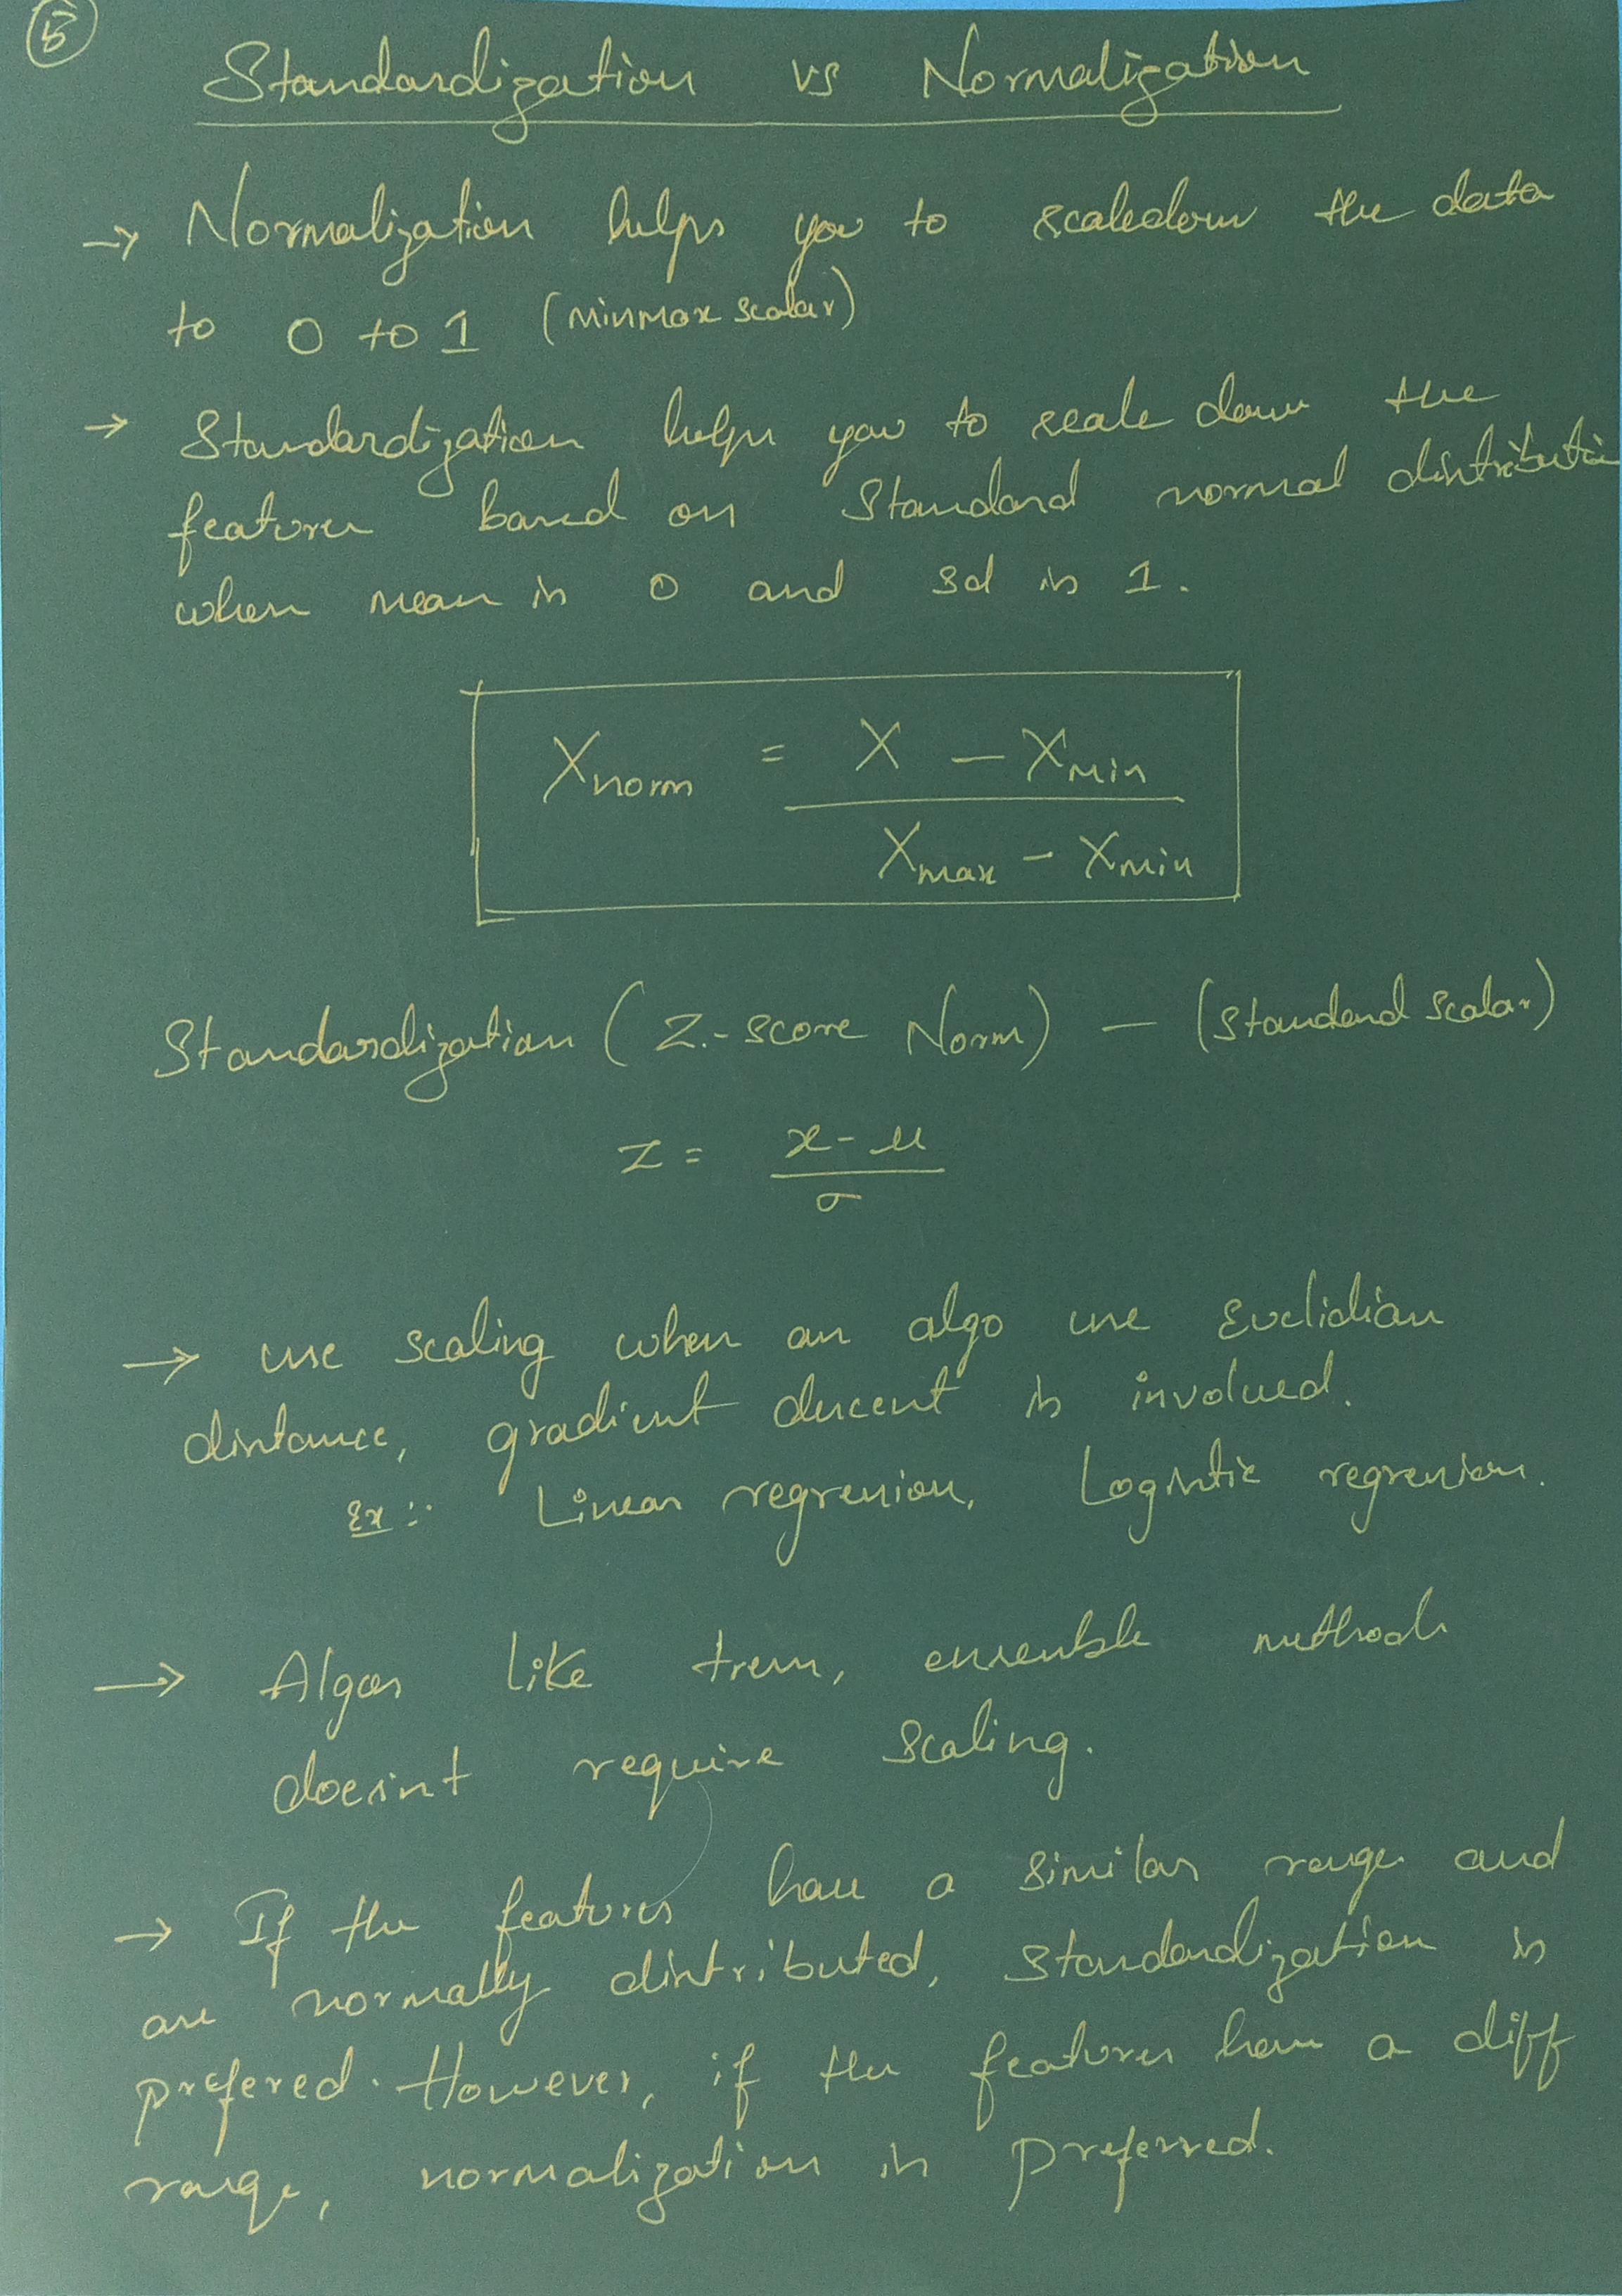 5
Standardization vs Normalization
→ Normalization helps you to scaledown the data
to 0 to 1 (MinMax Scalar)
→ Standardization helps you to scale down the
features based on Standard normal distributi
when mean is 0 and sd is 1.
Xnorm = X - Xmin
Xmax - Xmin
Standardization (Z-score Norm) - (Standard Scalar)
Z = x-μ
σ
→ use scaling when an algo use Euclidian
distance, gradient descent is involved.
Ex :- Linear regression, Logistic regression.
→ Algos like trees, ensemble methods
doesn't require Scaling.
→ If the features have a similar range and
are normally distributed, Standardization is
prefered. However, if the features have a diff
range, normalization is preferred.